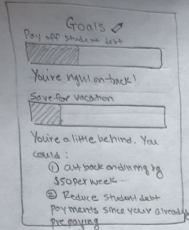 Goals
Pay off student debt
You're right on track!
Save for vacation
You're a little behind. You
could:
① cut back on dining by
$50 per week
② Reduce student debt
payments since your already
pre paying